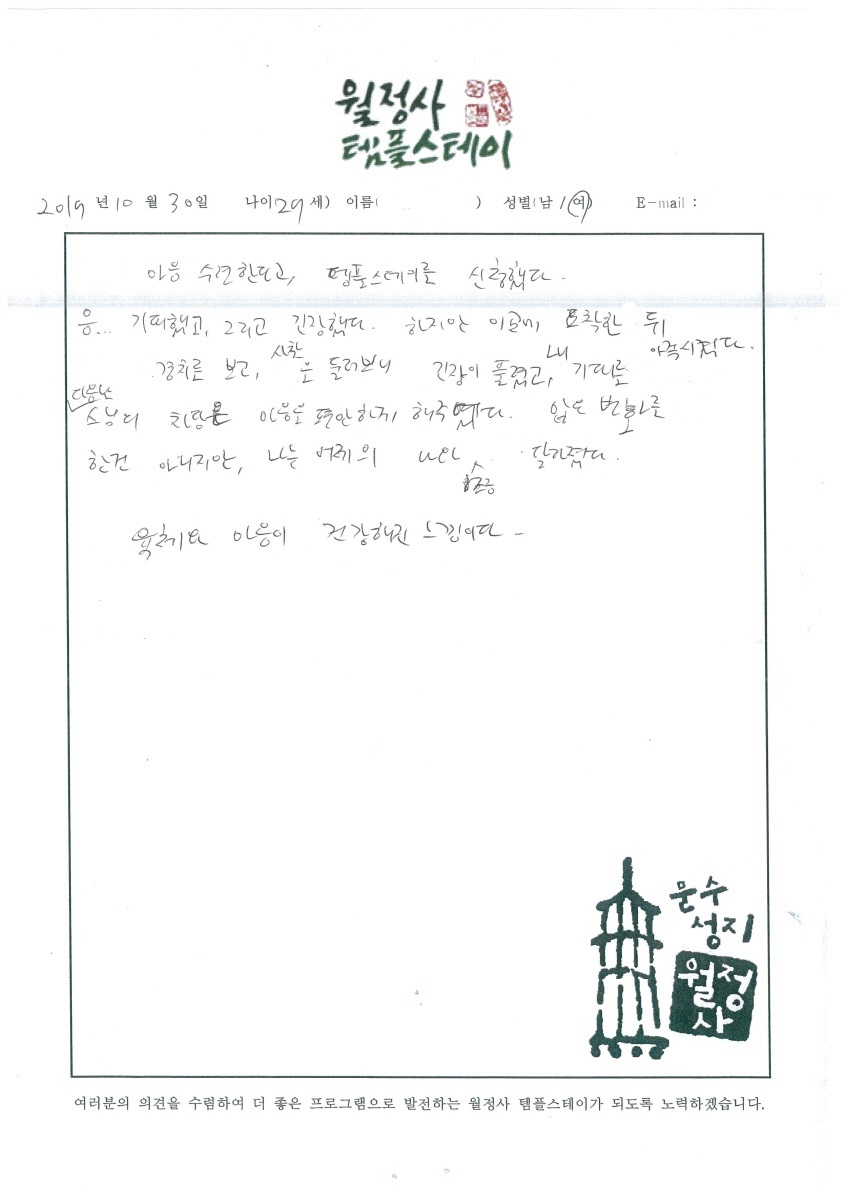 월정사
템플스테이
2019 년 10 월 30 일 나이(29 세) 이름( ) 성별(남/여) E-mail :
마음 수련한다고, 템플스테이를 신청했다.
음... 기대했고, 그리고 긴장했다. 하지만 도착한 뒤
경치를 보고, 사찰을 둘러보니 긴장이 풀렸고, 내 기대를 만족시켰다.
스님의 차담은 마음을 편안하게 해주었다. 많은 변화를
한건 아니지만, 나는 어제의 나와 조금 달라졌다.
육체와 마음이 건강해진 느낌이다-
문수
성지
월정
사
여러분의 의견을 수렴하여 더 좋은 프로그램으로 발전하는 월정사 템플스테이가 되도록 노력하겠습니다.